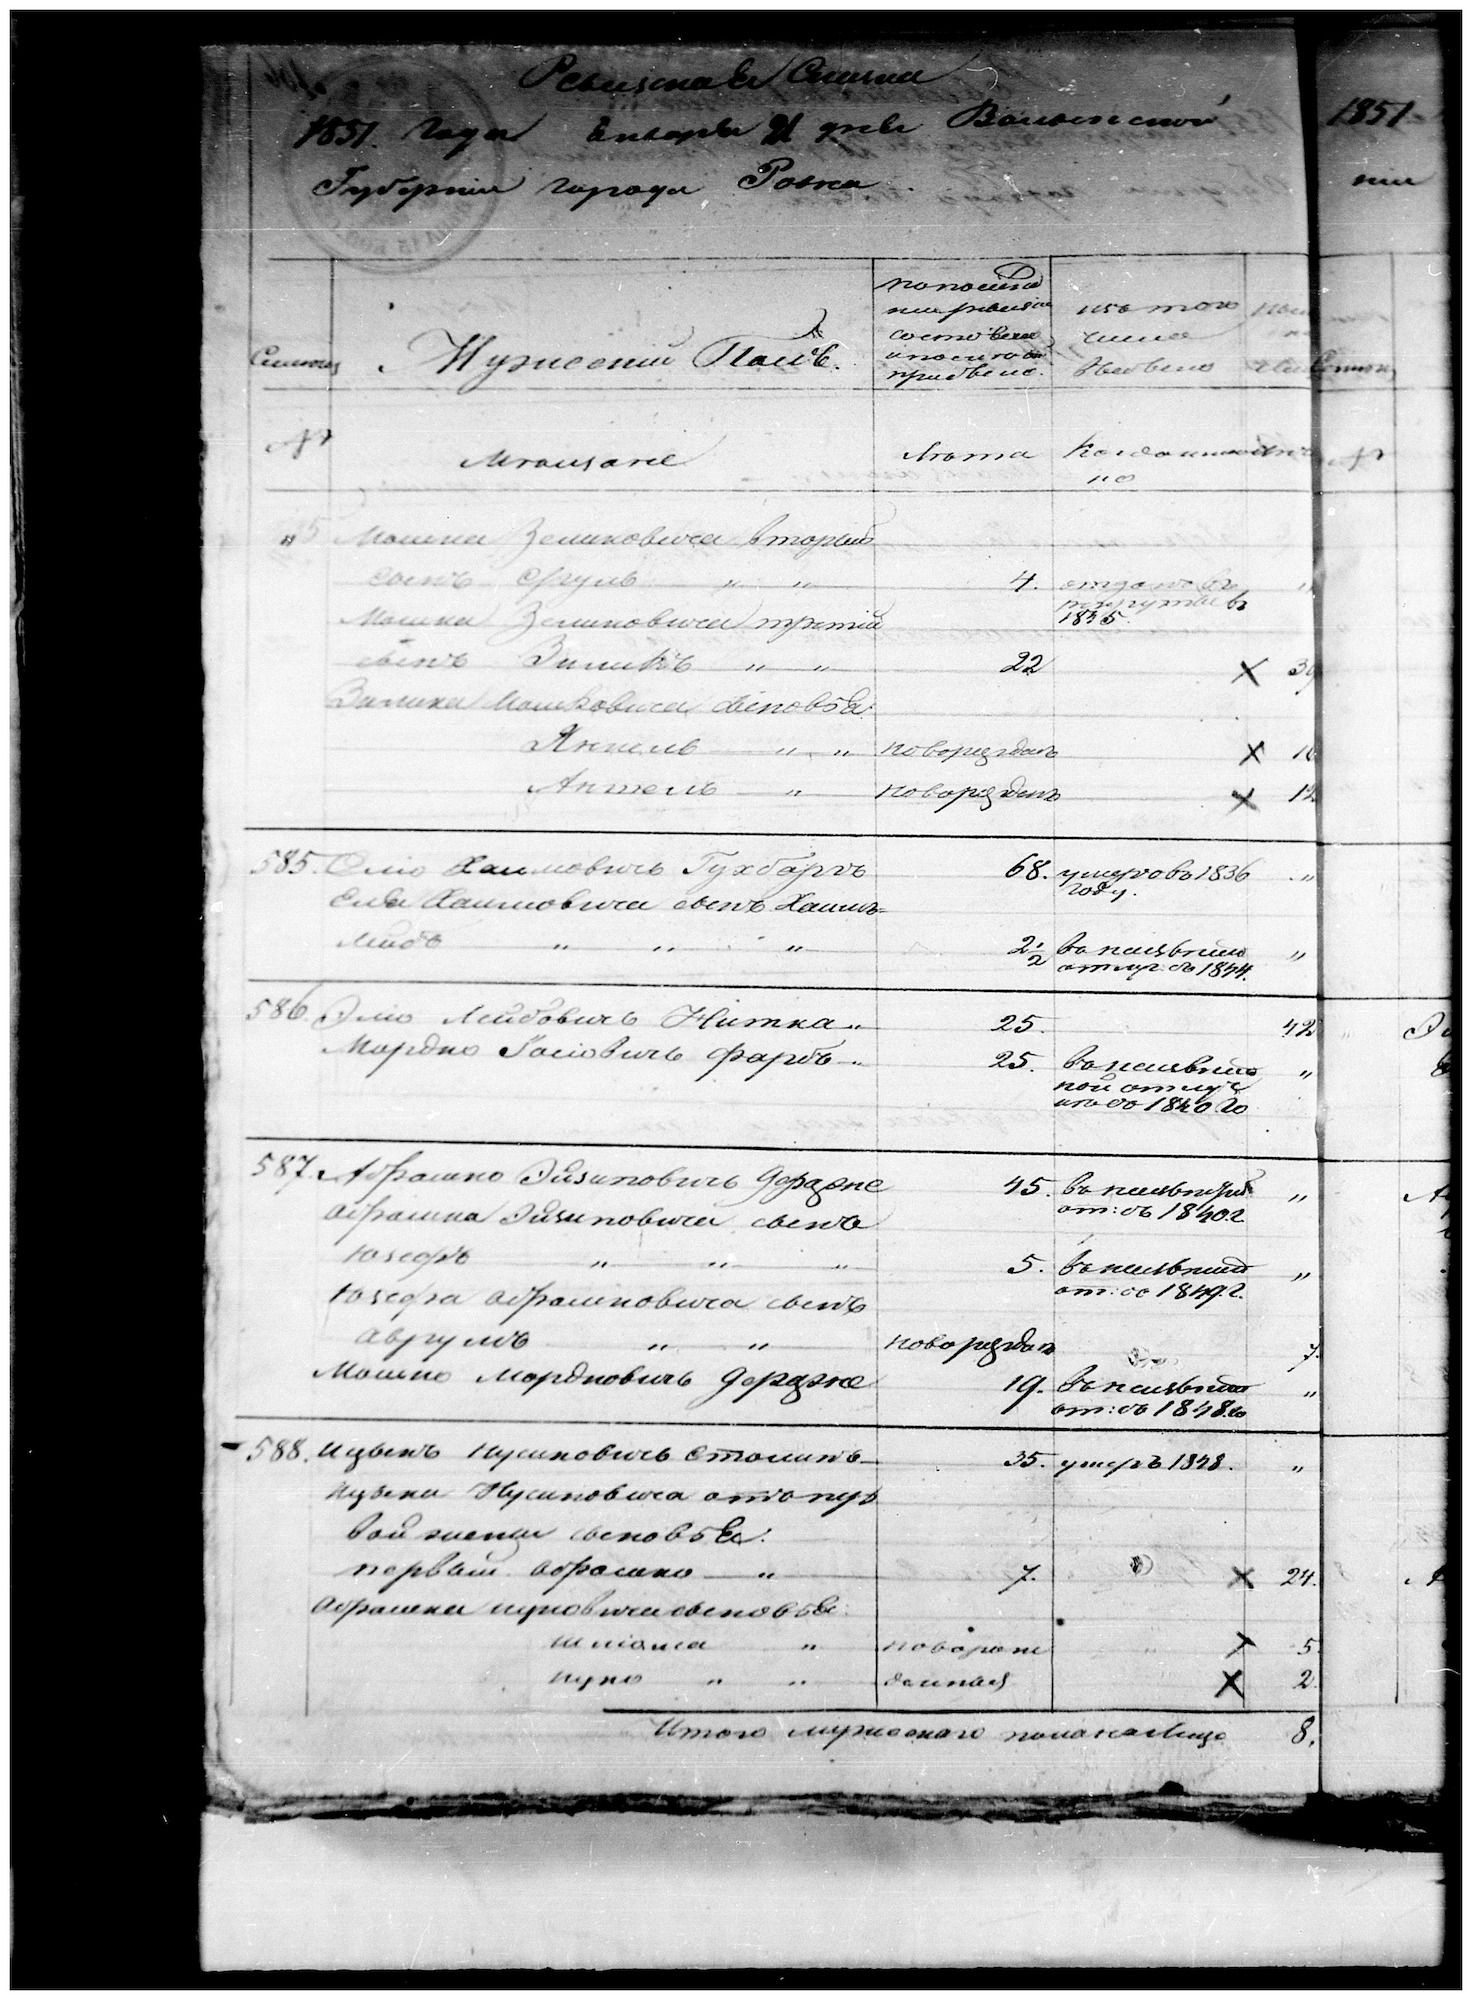 Ревизская Сказка
1851. года Генваря дня Волынской
Губернiи города Ровна
1851
нiи
Семьи
Мужескiй Полъ.
по последней ревизiи состояло и после того прибыло.
изъ того числа выбыло
№
Мещане
Лета
Когда именно
№
Мошка Зельмановича вторый
сынъ Сруль " "
4.
отданъ въ рекруты въ 1845
"
Мошка Зельмановича третiй
сынъ Зиликъ " "
22
39
Зилика Мошковича сыновья:
Янкель " "
новорожденъ
Аншель "
новорожденъ
12
585. Элiо Хаимовичъ Гухбаргъ
68.
умеръ въ 1836 году.
"
Елья Хаимовича сынъ Хаимъ
Лейбъ " " "
2 1/2
въ неизвѣстной отлуч: съ 1844.
"
586. Элiо Лейбовичъ Нитка "
25.
42
Мордко Iосiовичъ Фарбъ "
25.
въ неизвѣстной отлучке съ 1840 го
"
587. Абрашко Эйзиковичъ Деражне
45.
въ неизвѣстной от: съ 1840 г.
"
Абрашка Эйзиковича сынъ
Юзефъ " " "
5.
въ неизвѣстной от: съ 1849 г.
"
Юзефа Абрашковича сынъ
Аврумъ " "
новорожден
7.
Мошко Мордковичъ Деражне
19.
въ неизвѣстной от: съ 1848 го
"
588. Ицыкъ Нусиновичъ Столинъ
35.
умеръ 1848.
"
Ицыка Нусиновича отъ первой жены сыновья:
первый Абрашко "
7.
24.
Абрашка Ицковича сыновья:
Шлiома "
новорож
5.
Ицко " "
денныя
2.
Итого мужескаго пола налицо
8.